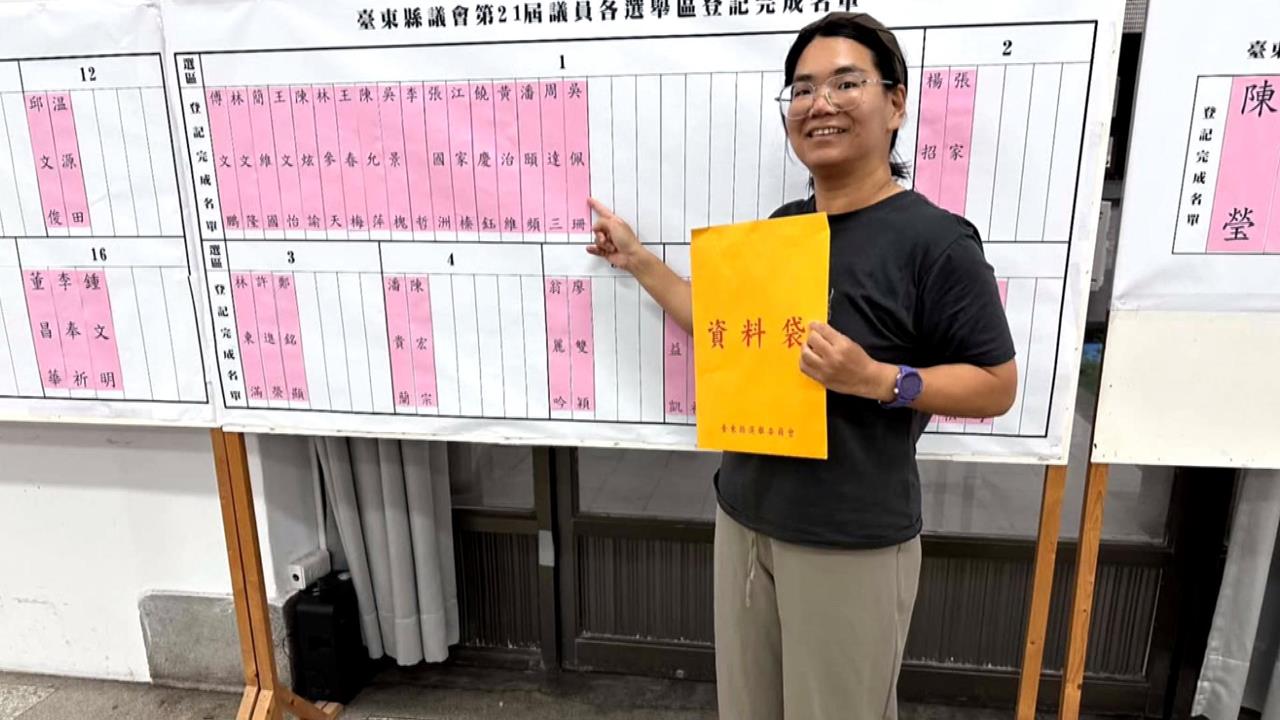 臺東縣議會第21屆議員各選舉區登記完成名單
12
邱文俊
溫源田
16
董昌華
李奉祈
鍾文明
選區
1
2
登記完成名單
傅文鵬
林文隆
簡維國
王文怡
陳炫諭
林參天
王春梅
陳允萍
吳景槐
李哲
張國洲
江家榛
饒慶鈺
黃治維
潘頤頻
周達三
吳佩珊
楊招
張家
選區
3
4
登記完成名單
林東滿
許進榮
鄭銘顯
潘貴蘭
陳宏宗
翁麗吟
廖雙穎
益凱
資料袋
臺東縣選舉委員會
臺
登記完成名單
陳瑩